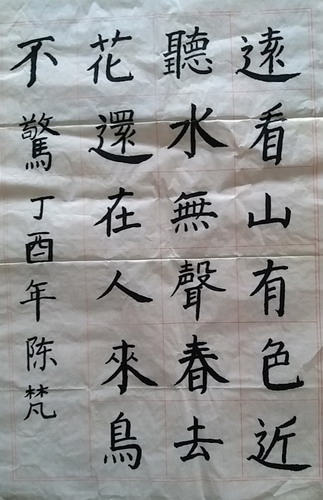 遠看山有色近
聽水無聲春去
花還在人來鳥
不驚丁酉年陈梵